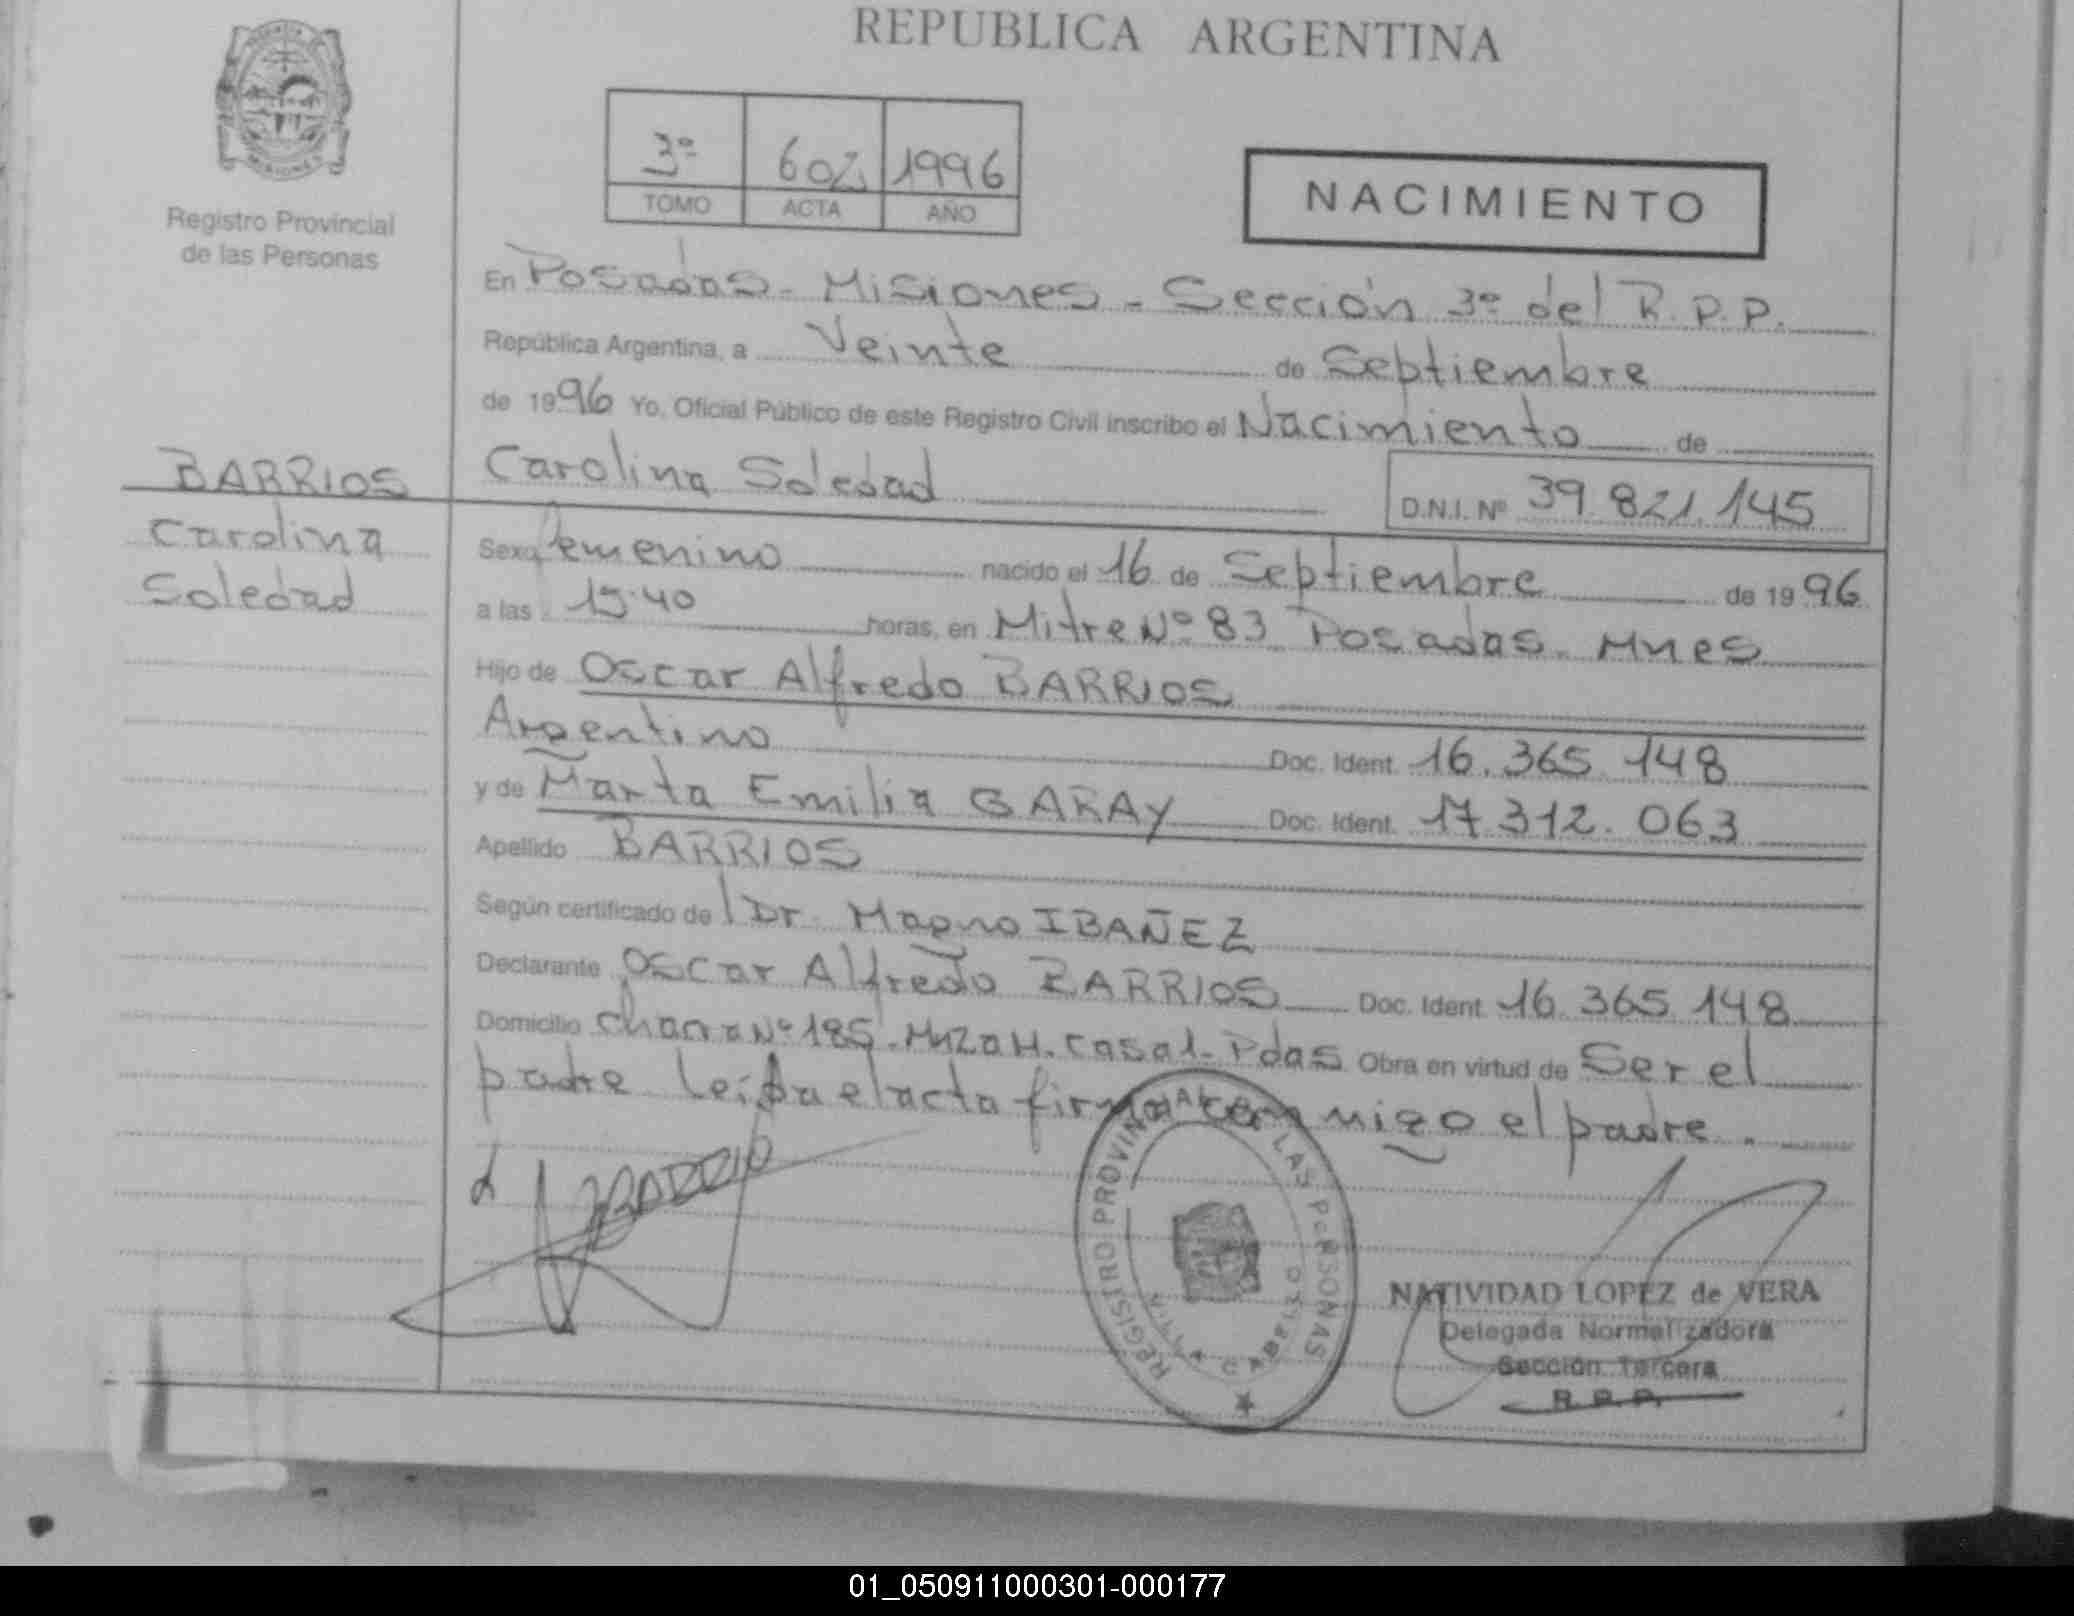 REPUBLICA ARGENTINA
3º 602 1996
TOMO ACTA AÑO
NACIMIENTO
Registro Provincial
de las Personas
En Posadas - Misiones - Sección 3º del R.P.P.
República Argentina, a Veinte de Septiembre
de 1996 Yo, Oficial Público de este Registro Civil inscribo el Nacimiento de
BARRIOS
Carolina Soledad D.N.I. Nº 39.821.145
Carolina
Soledad
Sexo femenino nacido el 16 de Septiembre de 1996
a las 15:40 horas, en Mitre Nº 83 Posadas - Mnes
Hijo de Oscar Alfredo BARRIOS
Argentino Doc. Ident. 16.365.148
y de Marta Emilia GARAY Doc. Ident. 17.312.063
Apellido BARRIOS
Según certificado de l Dr. Magno IBAÑEZ
Declarante Oscar Alfredo BARRIOS Doc. Ident. 16.365.148
Domicilio Chacra Nº 185 - Mnza H. Casa 1 - Pdas Obra en virtud de Ser el
padre leída el acta firma con migo el padre.
REGISTRO PROVINCIAL DE LAS PERSONAS
NATIVIDAD LOPEZ de VERA
Delegada Normalizadora
Sección Tercera
R.P.P.
01_050911000301-000177